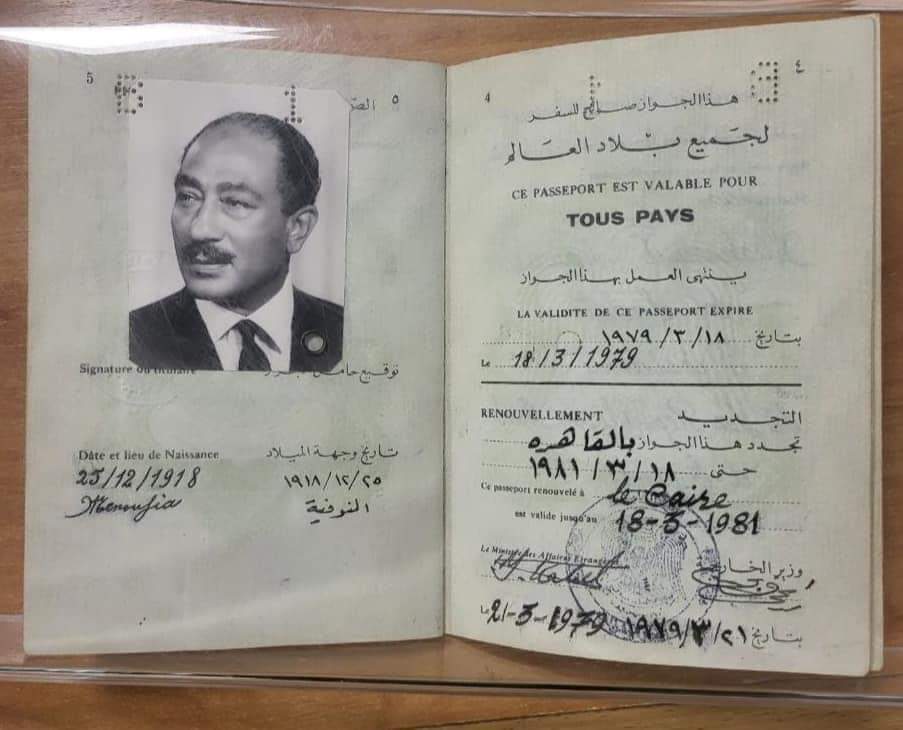 5
٥
Signature du titulaire
توقيع حامل
Dâte et lieu de Naissance
تاريخ وجهة الميلاد
25/12/1918
١٩١٨/١٢/٢٥
Menoufia
المنوفية
4
٤
هذا الجواز صالح للسفر
لجميع بلاد العالم
CE PASSEPORT EST VALABLE POUR
TOUS PAYS
ينتهى العمل بهذا الجواز
LA VALIDITE DE CE PASSEPORT EXPIRE
بتاريخ ١٩٧٩/٣/١٨
Le 18/3/1979
RENOUVELLEMENT التجديد
تجدد هذا الجواز بالقاهره
حتى ١٩٨١/٣/١٨
Ce passeport renouvelé à le Caire
est valide jusqu'au 18-3-1981
Le Ministre des Affaires Etrangères
وزير الخارجية
Le 21-3-1979
بتاريخ ١٩٧٩/٣/٢١